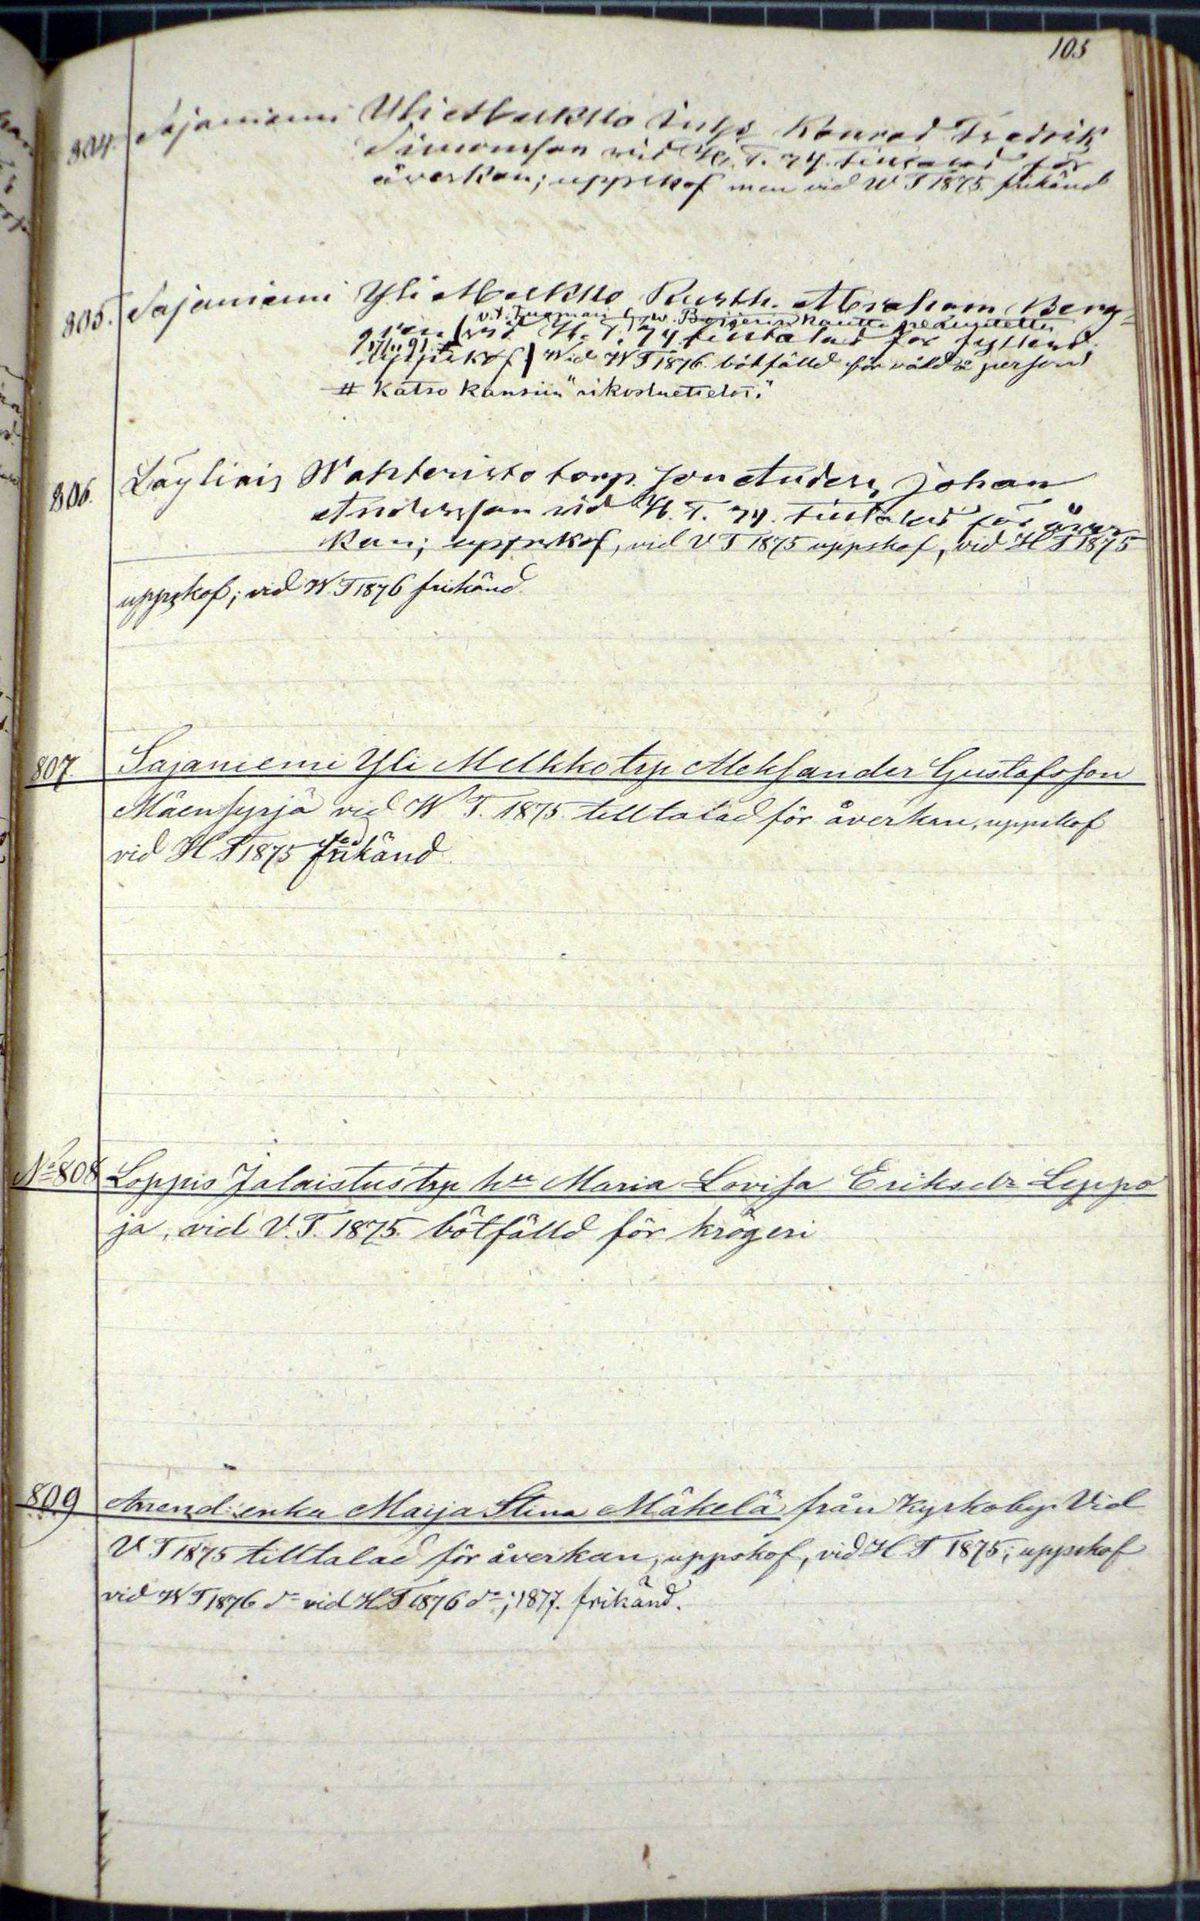 105
804. Sajaniemi Yli Melkko Inhs Konrad Fredrik
Simonsson vid H. T. 74. tilltalad för
åverkan; uppskof men vid W T 1875 frikänd
805. Sajaniemi Yli Melkko Rusth. Abraham Berg=
v.t. Tuomari kautta
gren (vid H. T. 74 tilltalad för fylleri
17/11 91. #
uppskof) Wid W T 1876 bötfälld för våld å person
# Katso Kansiin "rikosluettelot."
806. Läyliäis Wahteristo torp. son Anders, Johan
Andersson vid H. T. 74. tilltalad för åver
kan; uppskof, vid V T 1875 uppskof, vid H T 1875
uppskof; vid W T 1876 frikänd.
807. Sajaniemi Yli Melkko trp Aleksander Gustafsson
Mäensyrjä vid W T. 1875 tilltalad för åverkan, uppskof
vid H T 1875 frikänd.
No 808 Loppis Jalaistus trp hu Maria Lovisa Eriksdr Leppo
ja, vid V. T. 1875. bötfälld för krögeri
809 Arrend: enka Maija Stina Mäkelä från Kyrkoby. Vid
V T 1875 tilltalad för åverkan, uppskof, vid H T 1875; uppskof
vid W T 1876 do vid H T 1876 do; 1877. frikänd.